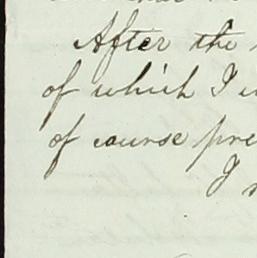 After the
of which I
of course pre
I